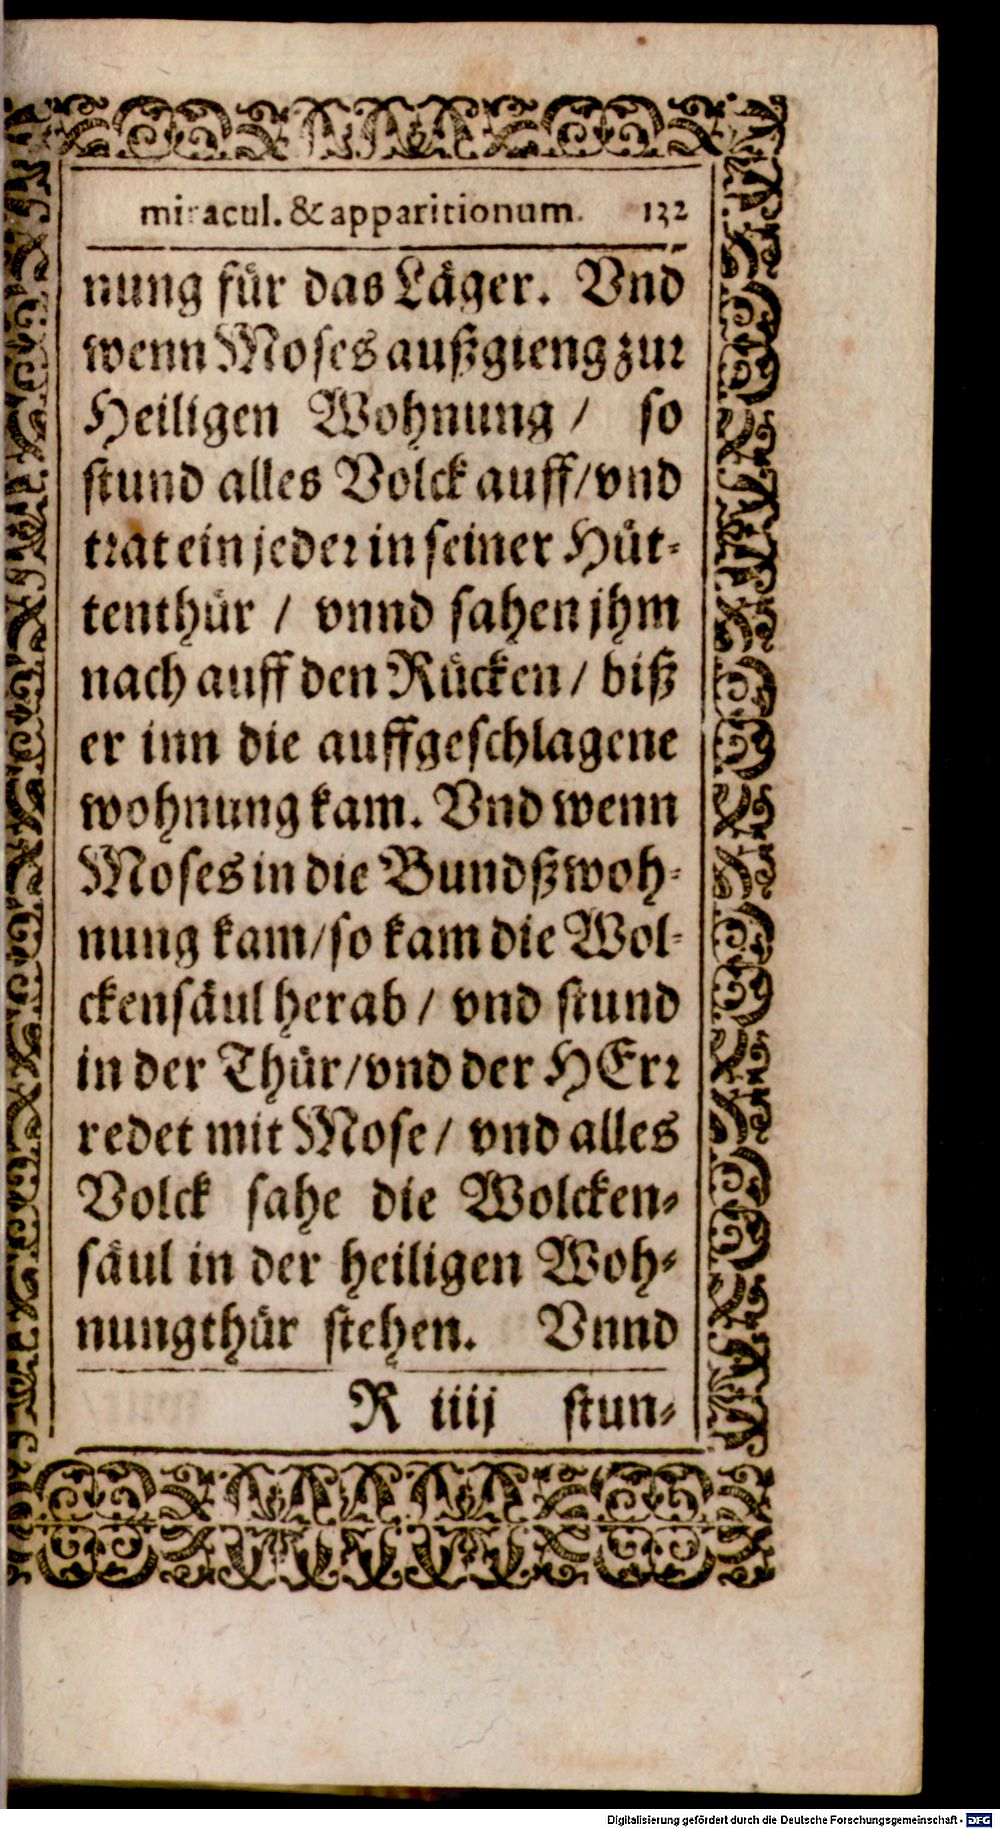 miracul. & apparitionum. 132
nung fůr das Låger. Vnd
wenn Moses außgieng zur
Heiligen Wohnung / so
stund alles Volck auff/vnd
trat ein jeder in seiner Hůt-
tenthůr / vnnd sahen jhm
nach auff den Růcken / biß
er inn die auffgeschlagene
wohnung kam. Vnd wenn
Moses in die Bundßwoh-
nung kam/so kam die Wol-
ckensåul herab / vnd stund
in der Thůr/vnd der HErr
redet mit Mose/ vnd alles
Volck sahe die Wolcken-
såul in der heiligen Woh-
nungthůr stehen. Vnnd
R iiij stun-
Digitalisierung gefördert durch die Deutsche Forschungsgemeinschaft - DFG